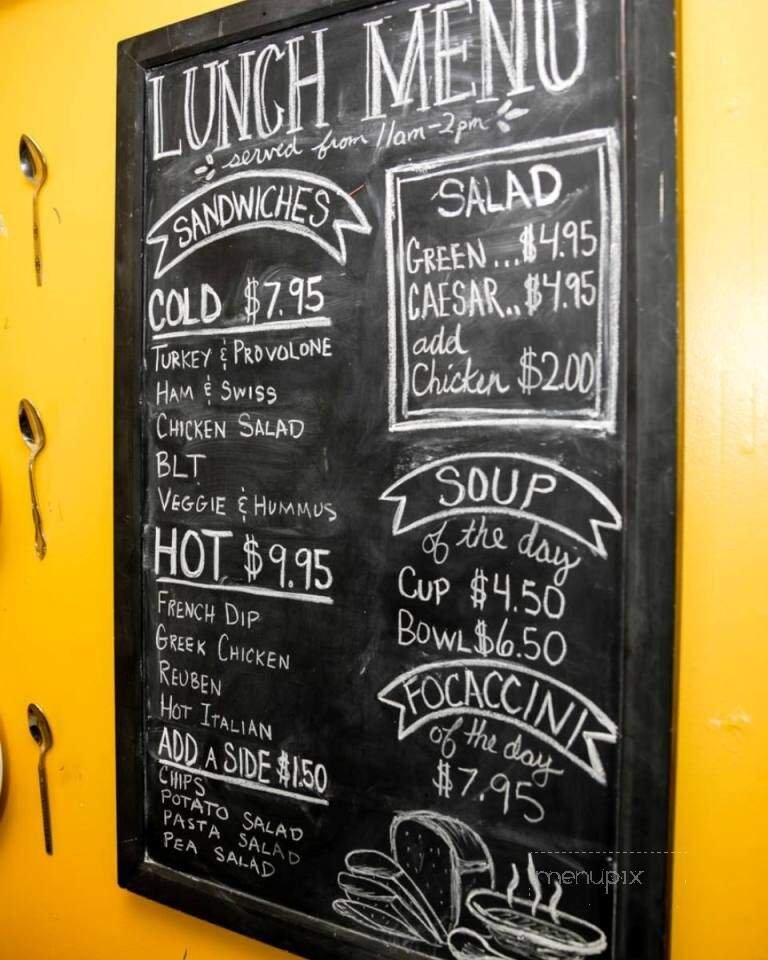 LUNCH MENU
served from 11am-2pm
SANDWICHES
COLD $7.95
TURKEY & PROVOLONE
HAM & SWISS
CHICKEN SALAD
BLT
VEGGIE & HUMMUS
HOT $9.95
FRENCH DIP
GREEK CHICKEN
REUBEN
HOT ITALIAN
ADD A SIDE $1.50
CHIPS
POTATO SALAD
PASTA SALAD
PEA SALAD
SALAD
GREEN...$4.95
CAESAR..$4.95
add
Chicken $2.00
SOUP
of the day
CUP $4.50
BOWL $6.50
FOCACCINI
of the day
$7.95
menupix